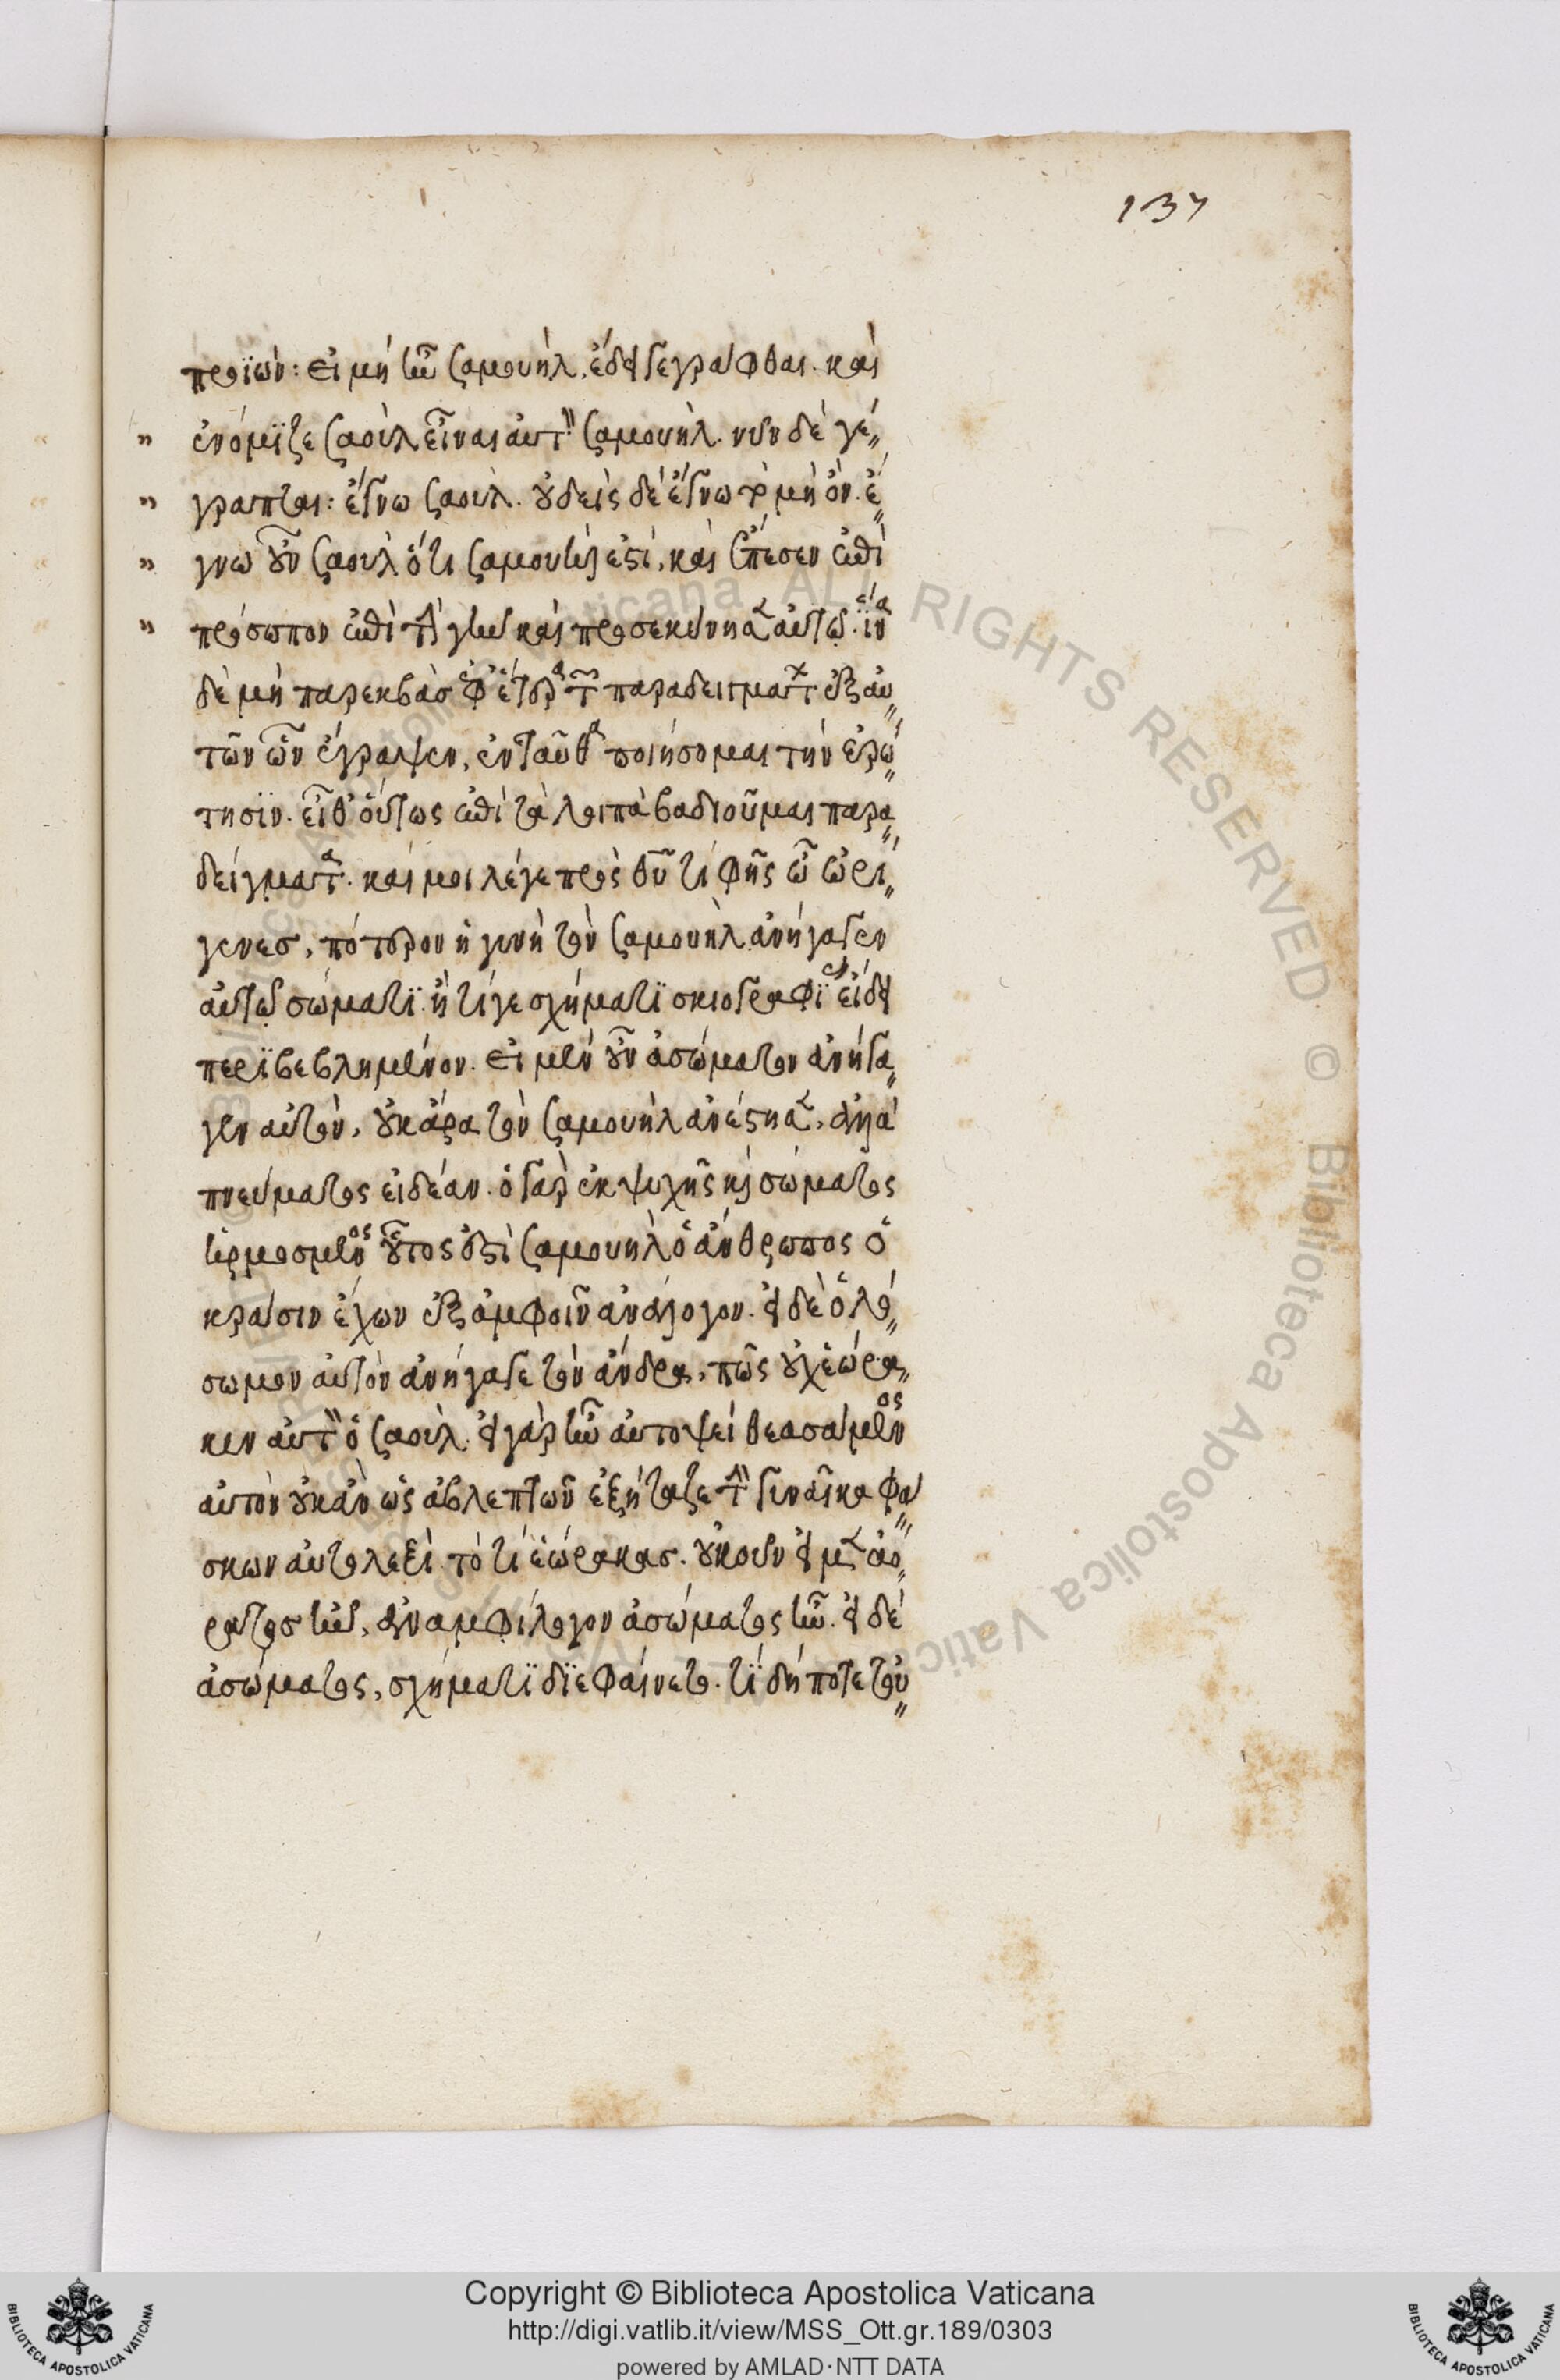 137
προϊών: εἰ μὴ ἦν Σαμουὴλ, ἔδει γεγράφθαι. καὶ
" ἐνόμιζε Σαοὺλ εἶναι αὐτὸν Σαμουήλ. νῦν δὲ γέ„
" γραπται: ἔγνω Σαούλ. οὐδεὶς δὲ ἔγνω τὸ μὴ ὄν. ἔ„
" γνω οὖν Σαοὺλ ὅτι Σαμουήλ ἐστι, καὶ ἔπεσεν ἐπὶ
" πρόσωπον ἐπὶ τὴν γῆν καὶ προσεκύνησεν αὐτῷ. ἵνα
δὲ μὴ παρεκβὰς ἐφ' ἕτερα τῶν παραδειγμάτων ἐξ αυ„
τῶν ὧν ἔγραψεν, ἐνταῦθα ποιήσομαι τὴν ἐρώ„
τησιν. εἶθ' οὕτως ἐπὶ τὰ λοιπὰ βαδιοῦμαι παρα„
δείγματα. καί μοι λέγε πρὸς θεοῦ τί φῂς ὦ ὠρί„
γενες, πότερον ἡ γυνὴ τὸν Σαμουὴλ ἀνήγαγεν
αὐτῷ σώματι. ἤ τινι γε σχήματι σκιογραφίας εἴδει
περιβεβλημένον. εἰ μὲν οὖν ἀσώματον ἀνήγα„
γεν αὐτὸν, οὐκ ἄρα τὸν Σαμουὴλ ἀνέστησεν, ἀλλὰ
πνεύματος εἰδέαν. ὁ γὰρ ἐκ ψυχῆς καὶ σώματος
ἡρμοσμένος οὗτος ἐστὶ Σαμουὴλ ὁ ἄνθρωπος ὁ
κρᾶσιν ἔχων ἐξ ἀμφοῖν ἀνάλογον. εἰ δὲ ὁλό„
σωμον αὐτὸν ἀνήγαγε τὸν ἄνδρα, πῶς οὐχ ἑώρα„
κεν αὐτὸν ὁ Σαούλ. εἰ γὰρ ἦν αὐτοψεὶ θεασάμενος
αὐτὸν οὐκ ἂν ὡς ἀβλεπτῶν ἐξήταζε τὴν γυναῖκα φά„
σκων αὐτολεξὶ τὸ τί ἑώρακας. οὐκοῦν εἰ μὲν ἀό„
ρατος ἦν, ἀναμφίλογον ἀσώματος ἦν. εἰ δὲ
ἀσώματος, σχήματι διεφαίνετο. τί δή ποτε τὸν„
Copyright © Biblioteca Apostolica Vaticana
http://digi.vatlib.it/view/MSS_Ott.gr.189/0303
powered by AMLAD·NTT DATA